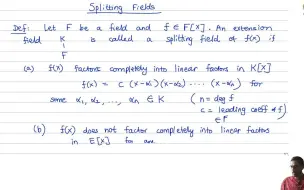 Splitting Fields
Def: Let F be a field and f ∈ F[x]. An extension
field K is called a splitting field of f(x) if
|
F
(a) f(x) factors completely into linear factors in K[x]
f(x) = c (x-α₁)(x-α₂) .... (x-αₙ) for
some α₁, α₂, ..., αₙ ∈ K (n = deg f
c = leading coeff of f)
∈ F
(b) f(x) does not factor completely into linear factors
in E[x] for